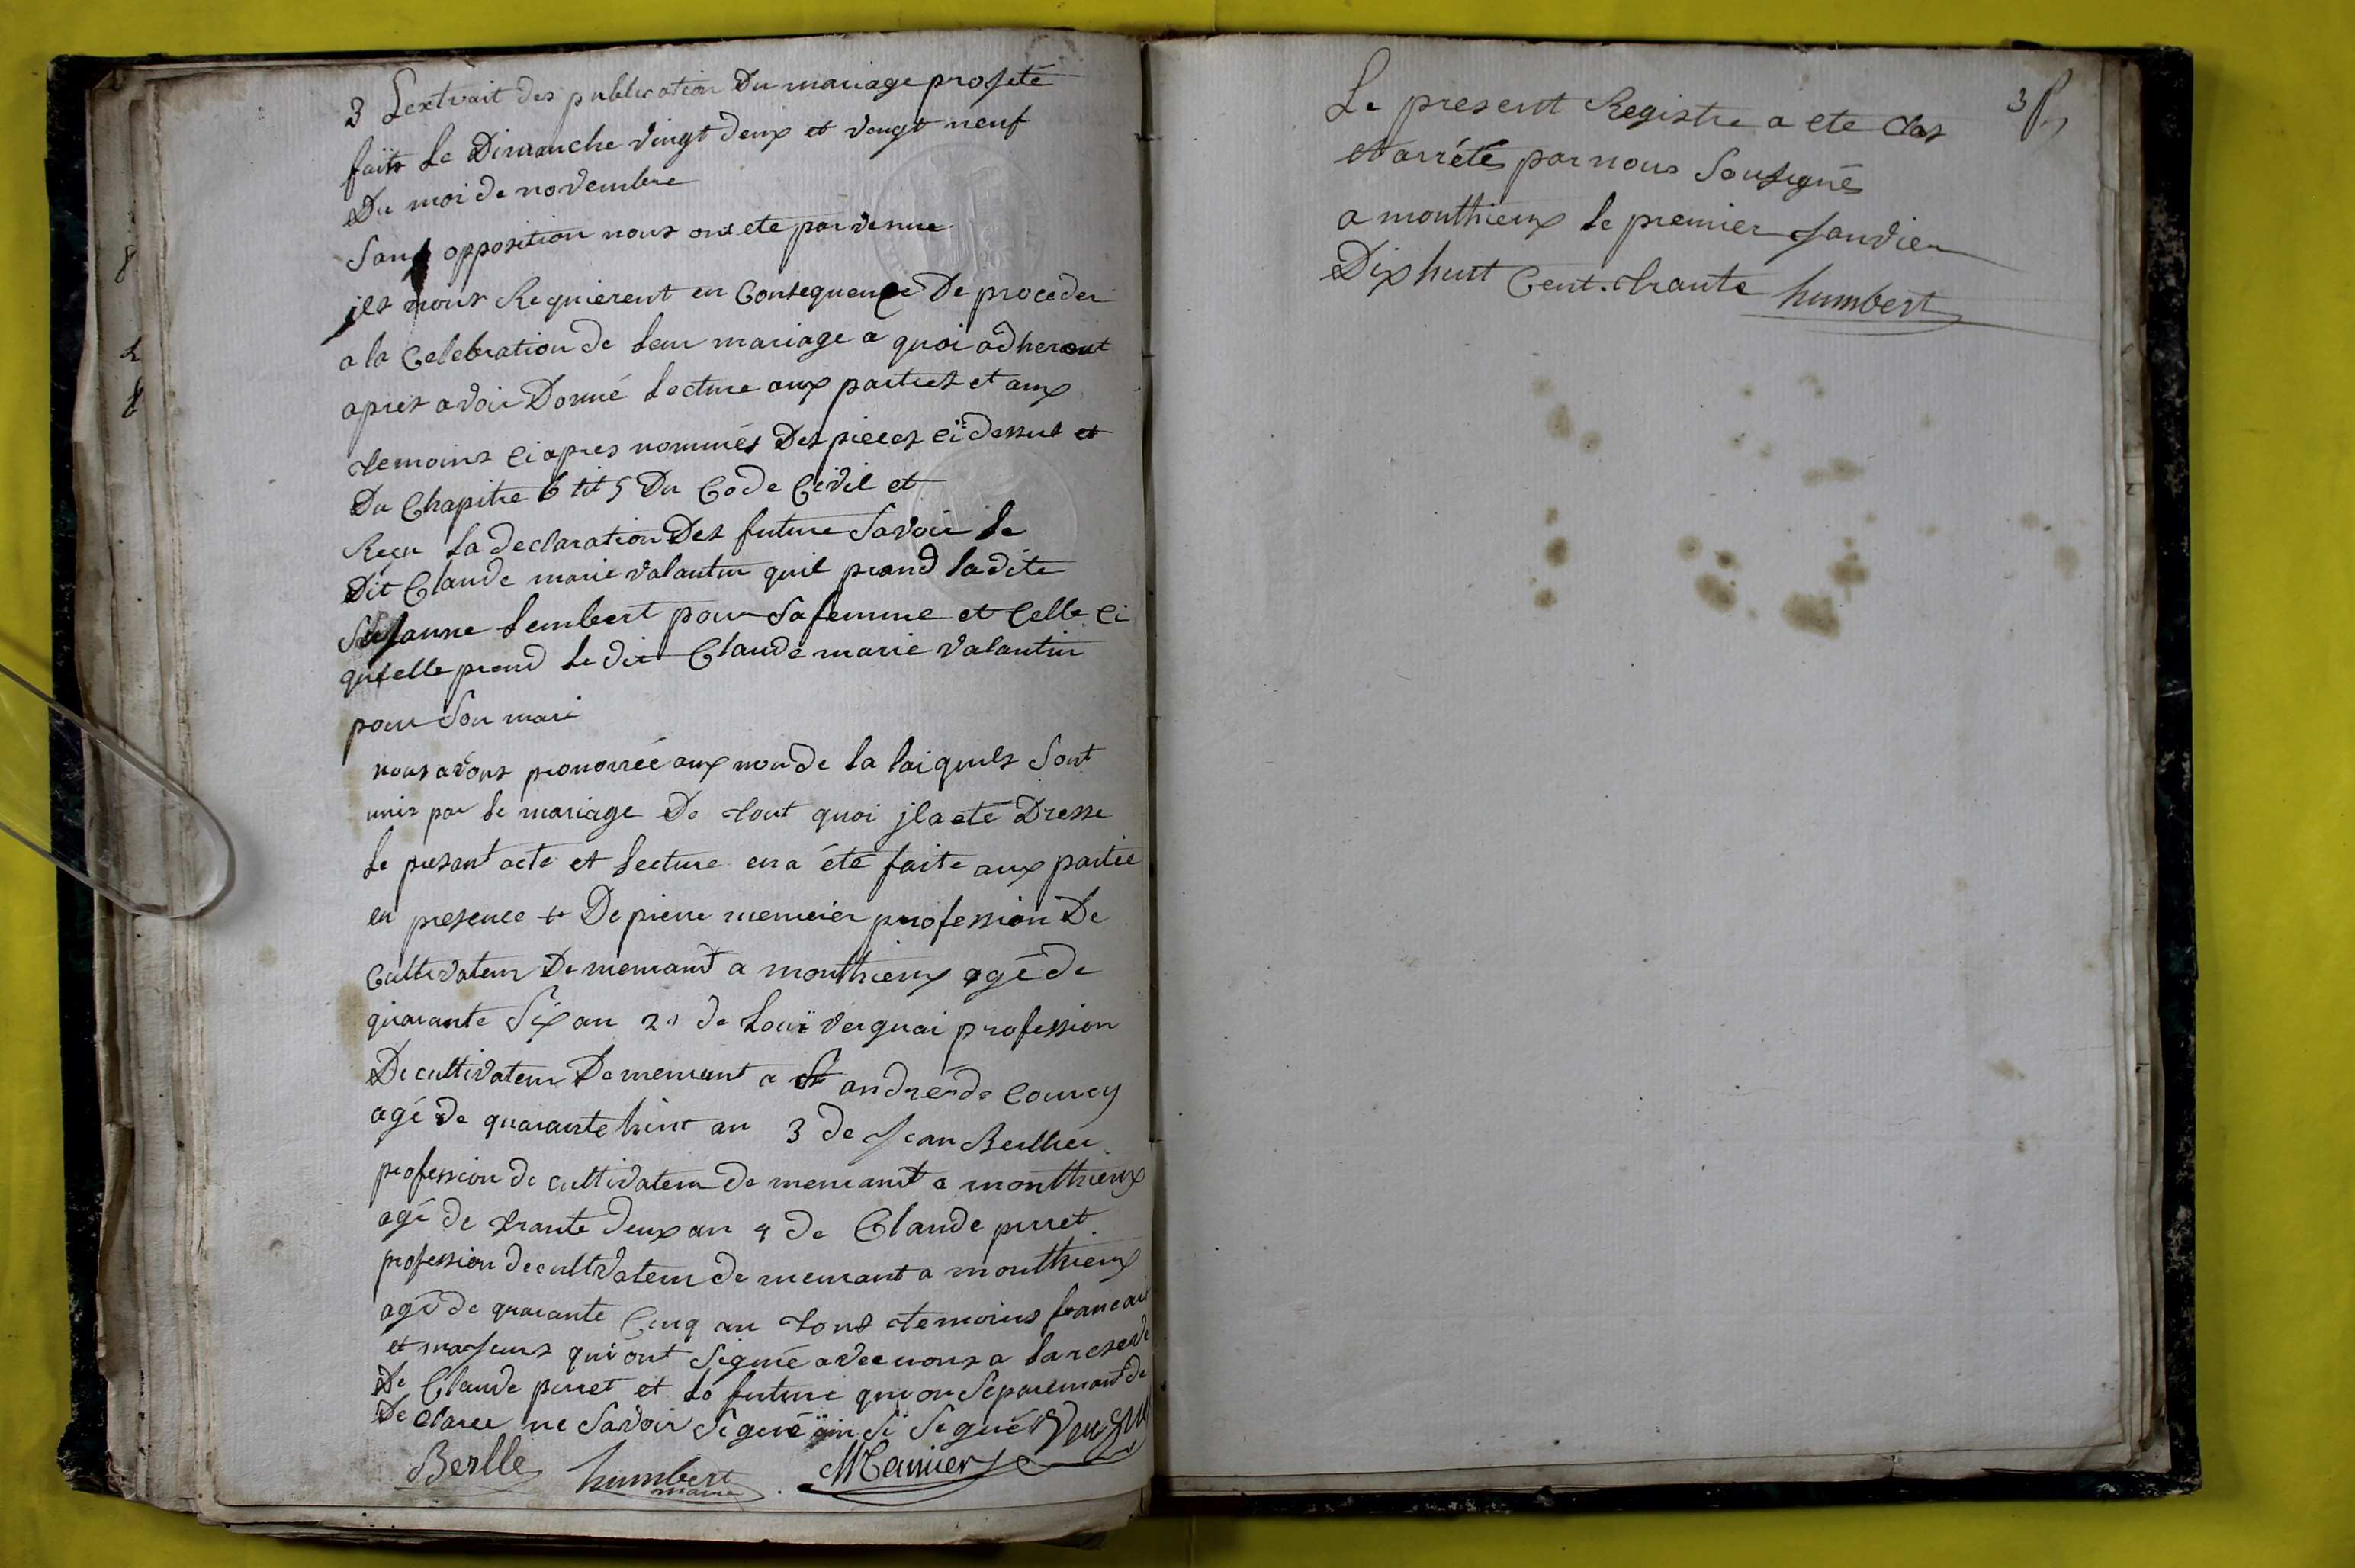 3 Lextrait des publication Du mariage projeté
faits Le Dimanche vingt deux et vengt neuf
Du moi de novembre
Sans opposition nous ont ete parvenue
jls nous Requierent en Consequence De proceder
a la Celebration de Leur mariage a quoi adherant
apres avoir Donné Lecture aux parties et aux
temoins Ci apres nommés Des pieces ci dessus et
Du Chapitre 6 tit 5 Du Code Civil et
Reçu La declaration Des future Savoir Le
Dit Claude marie valantin quil prand ladite
Susanne Lembert pour Sa femme et Celle Ci
quelle prend Le dit Claude marie valantin
pour Son mari
nous avons prononcé aux nom de La Loi quils Sont
unis par Le mariage De tout quoi jl a eté Dresse
Le presant acte et Lecture en a été faite aux partie
en presence De pierre mernier profession De
Cultivateur Demeurant a monthieux agé de
quarante Six an 2 de Louï verguai profession
De cultivateur Demeurant a St andré de Courcy
agé De quarante huit an 3 de Jean Berllie
profession de cultivateur demeurant a monthieux
agé de trante deux an 4 de Claude perret
profession de cultivateur demeurant a monthieux
agé de quarante Cinq an tous temoins francais
et majeurs qui ont Signé avec nous a La reserve
De Claude perret et La future qui on Separement de
De Claree ne Savoir Signé ainsi Signé
Berlle humbert Mernier
maire
Le present Registre a ete Clos
et arrété par nous Sousigné
a monthieux Le premier Janvier
Dix huit Cent trante humbert
8
8